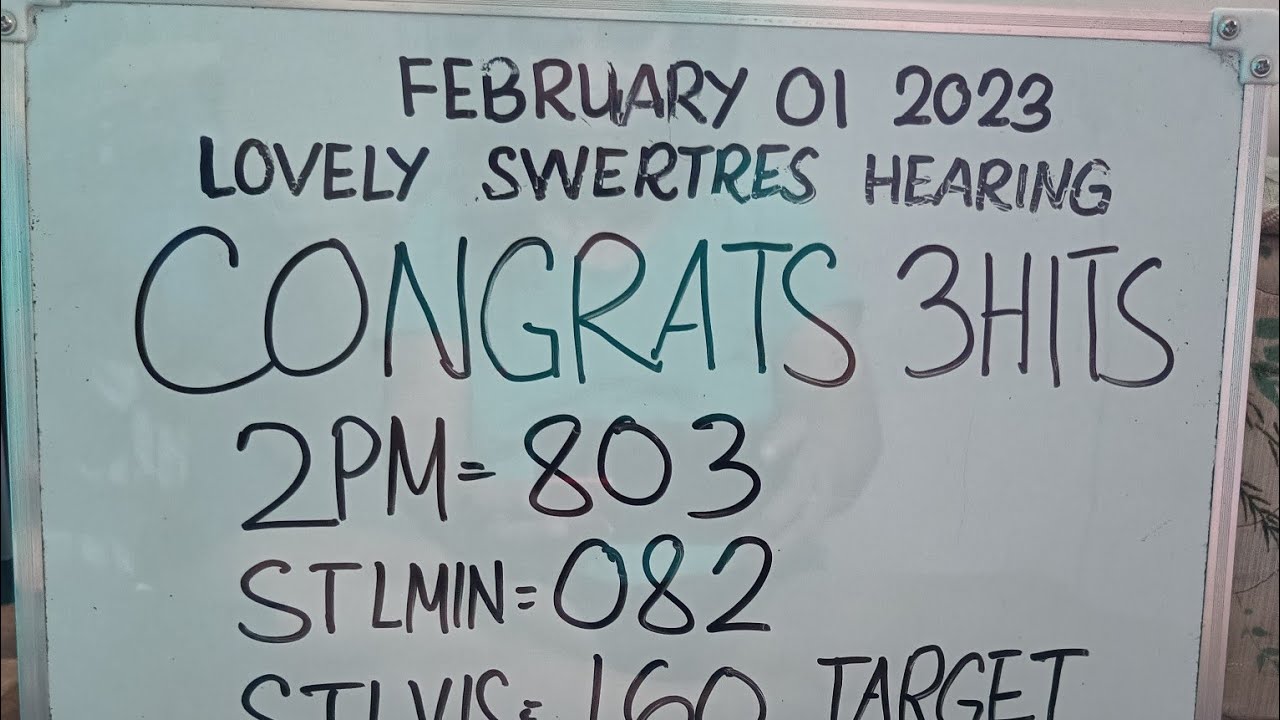 FEBRUARY 01 2023
LOVELY SWERTRES HEARING
CONGRATS 3HITS
2PM=803
STLMIN=082
STLVIS=160 TARGET